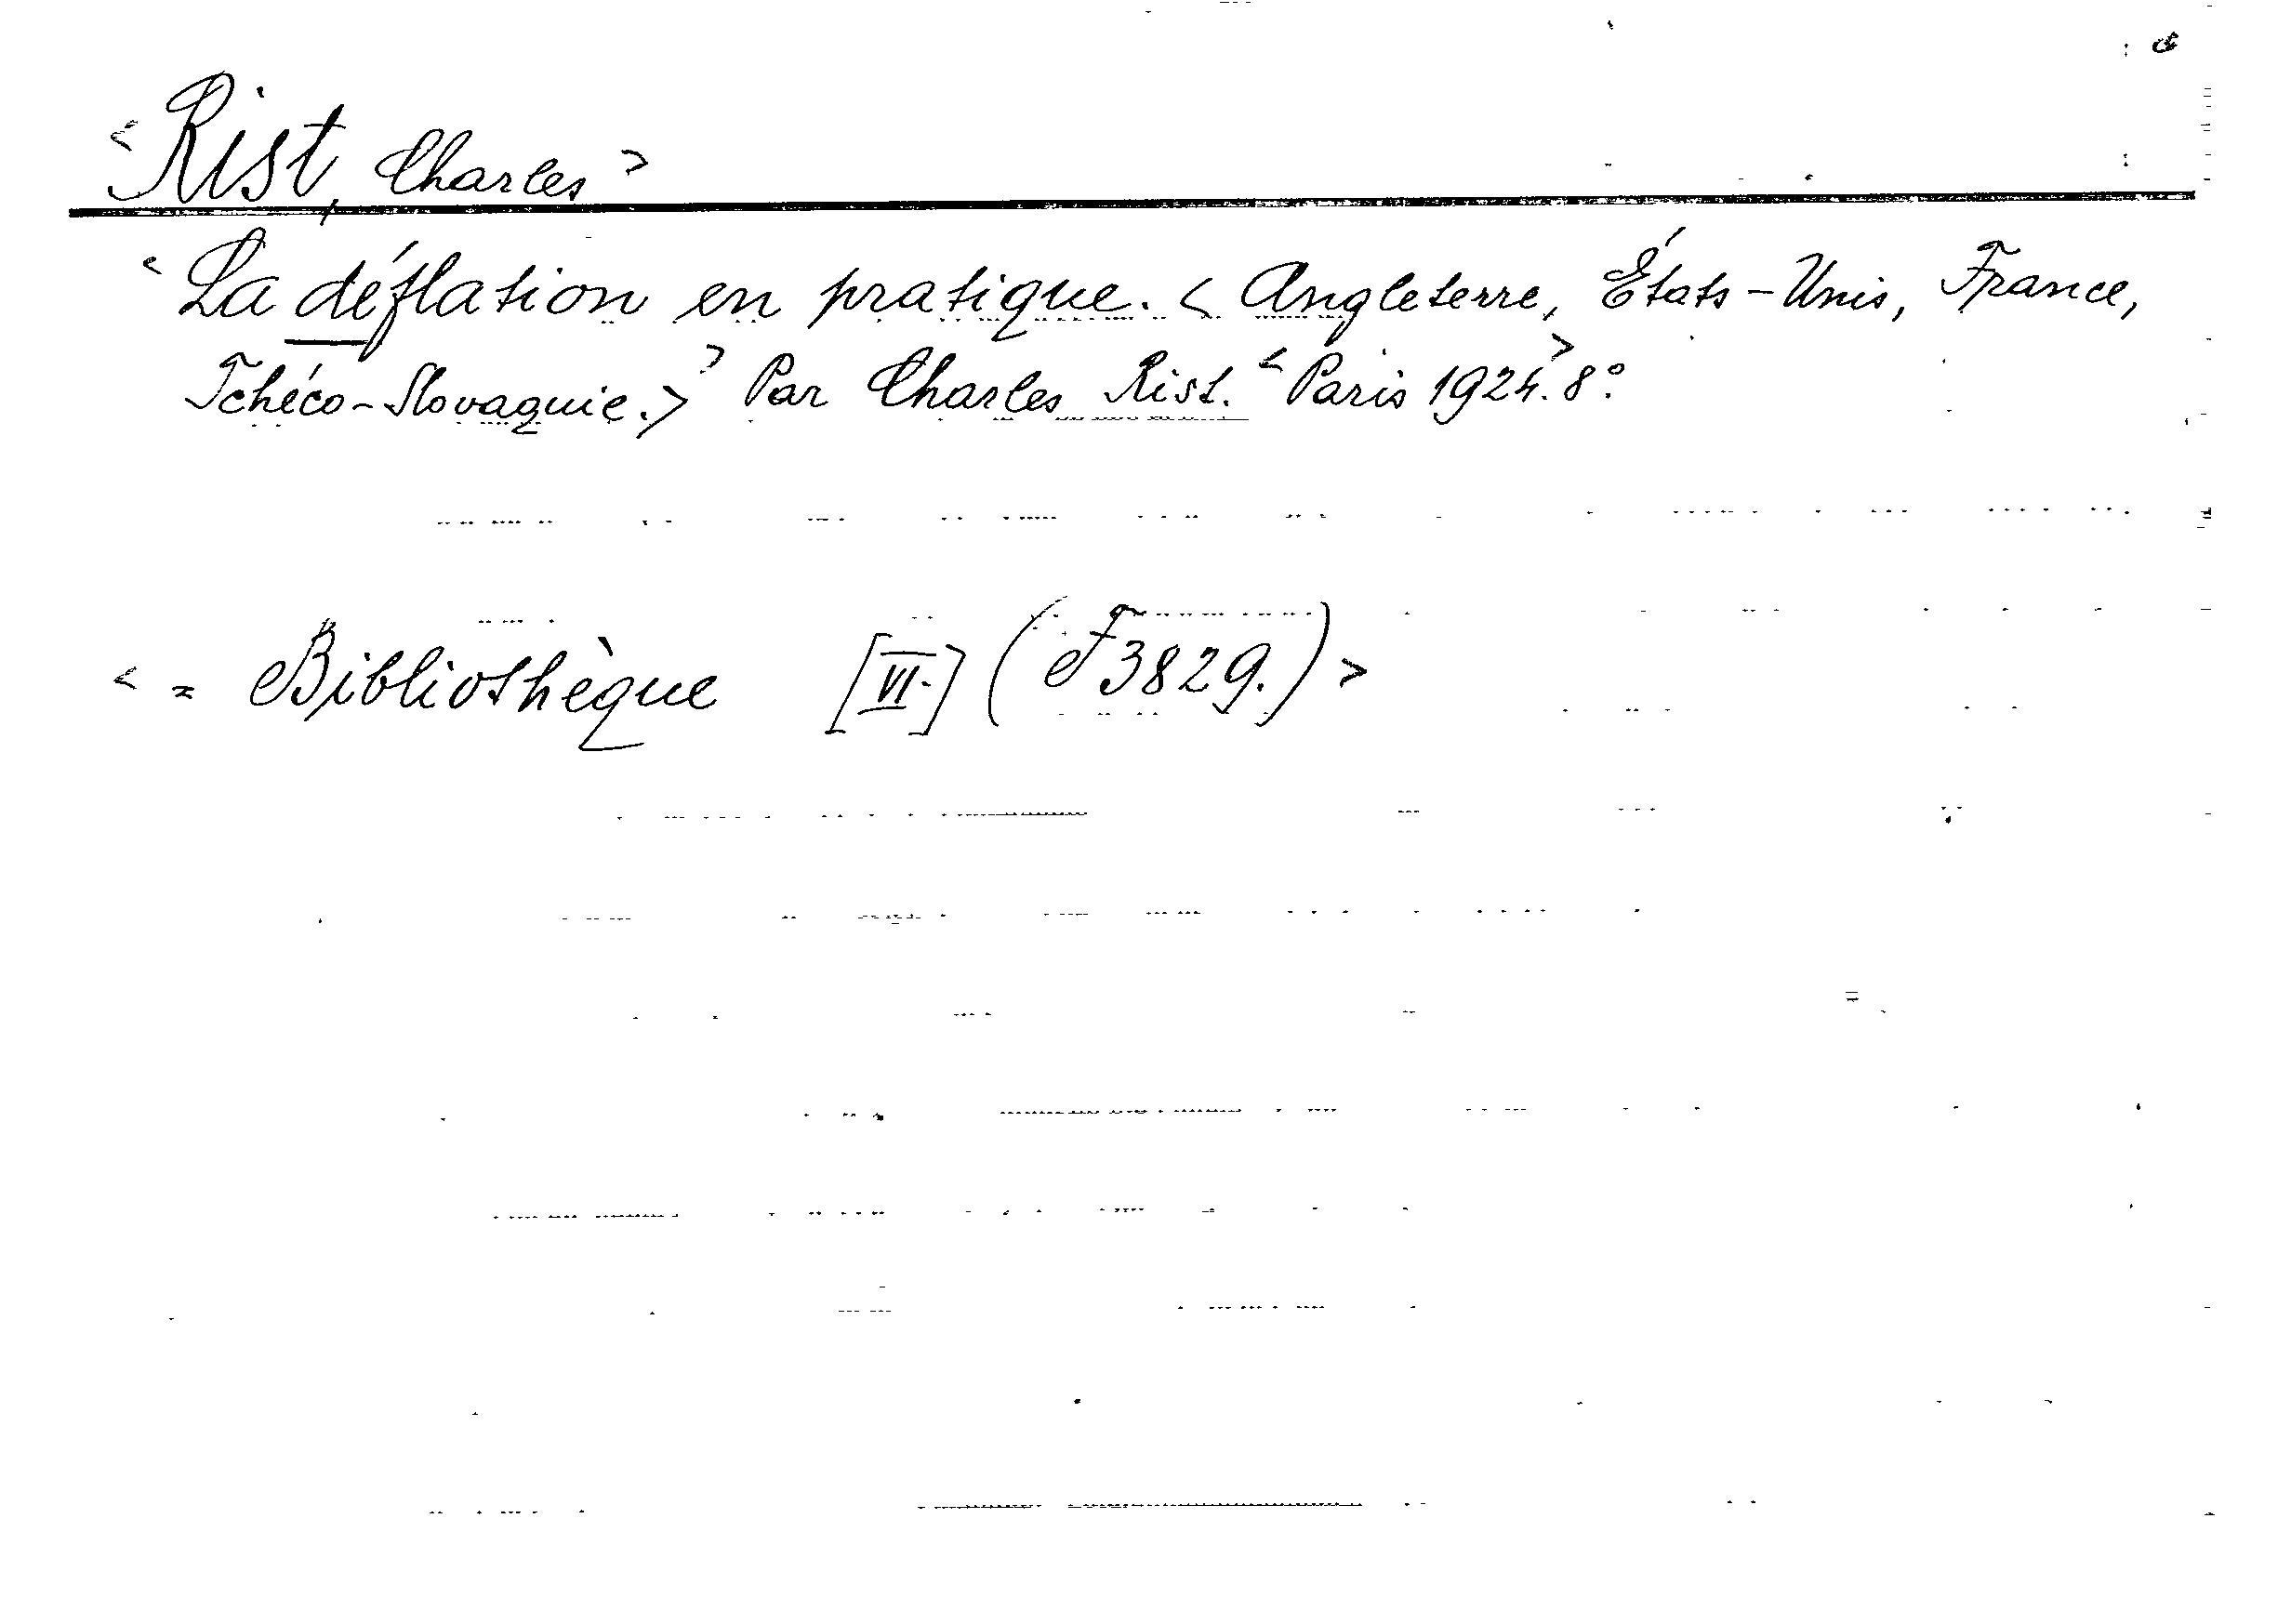 <Rist, Charles>
<La déflation en pratique. <Angleterre, États-Unis, France,
Tchéco-Slovaquie.>> Par Charles Rist. <Paris 1924.> 8°.
< = Bibliothèque [VI.] (F3829.) >